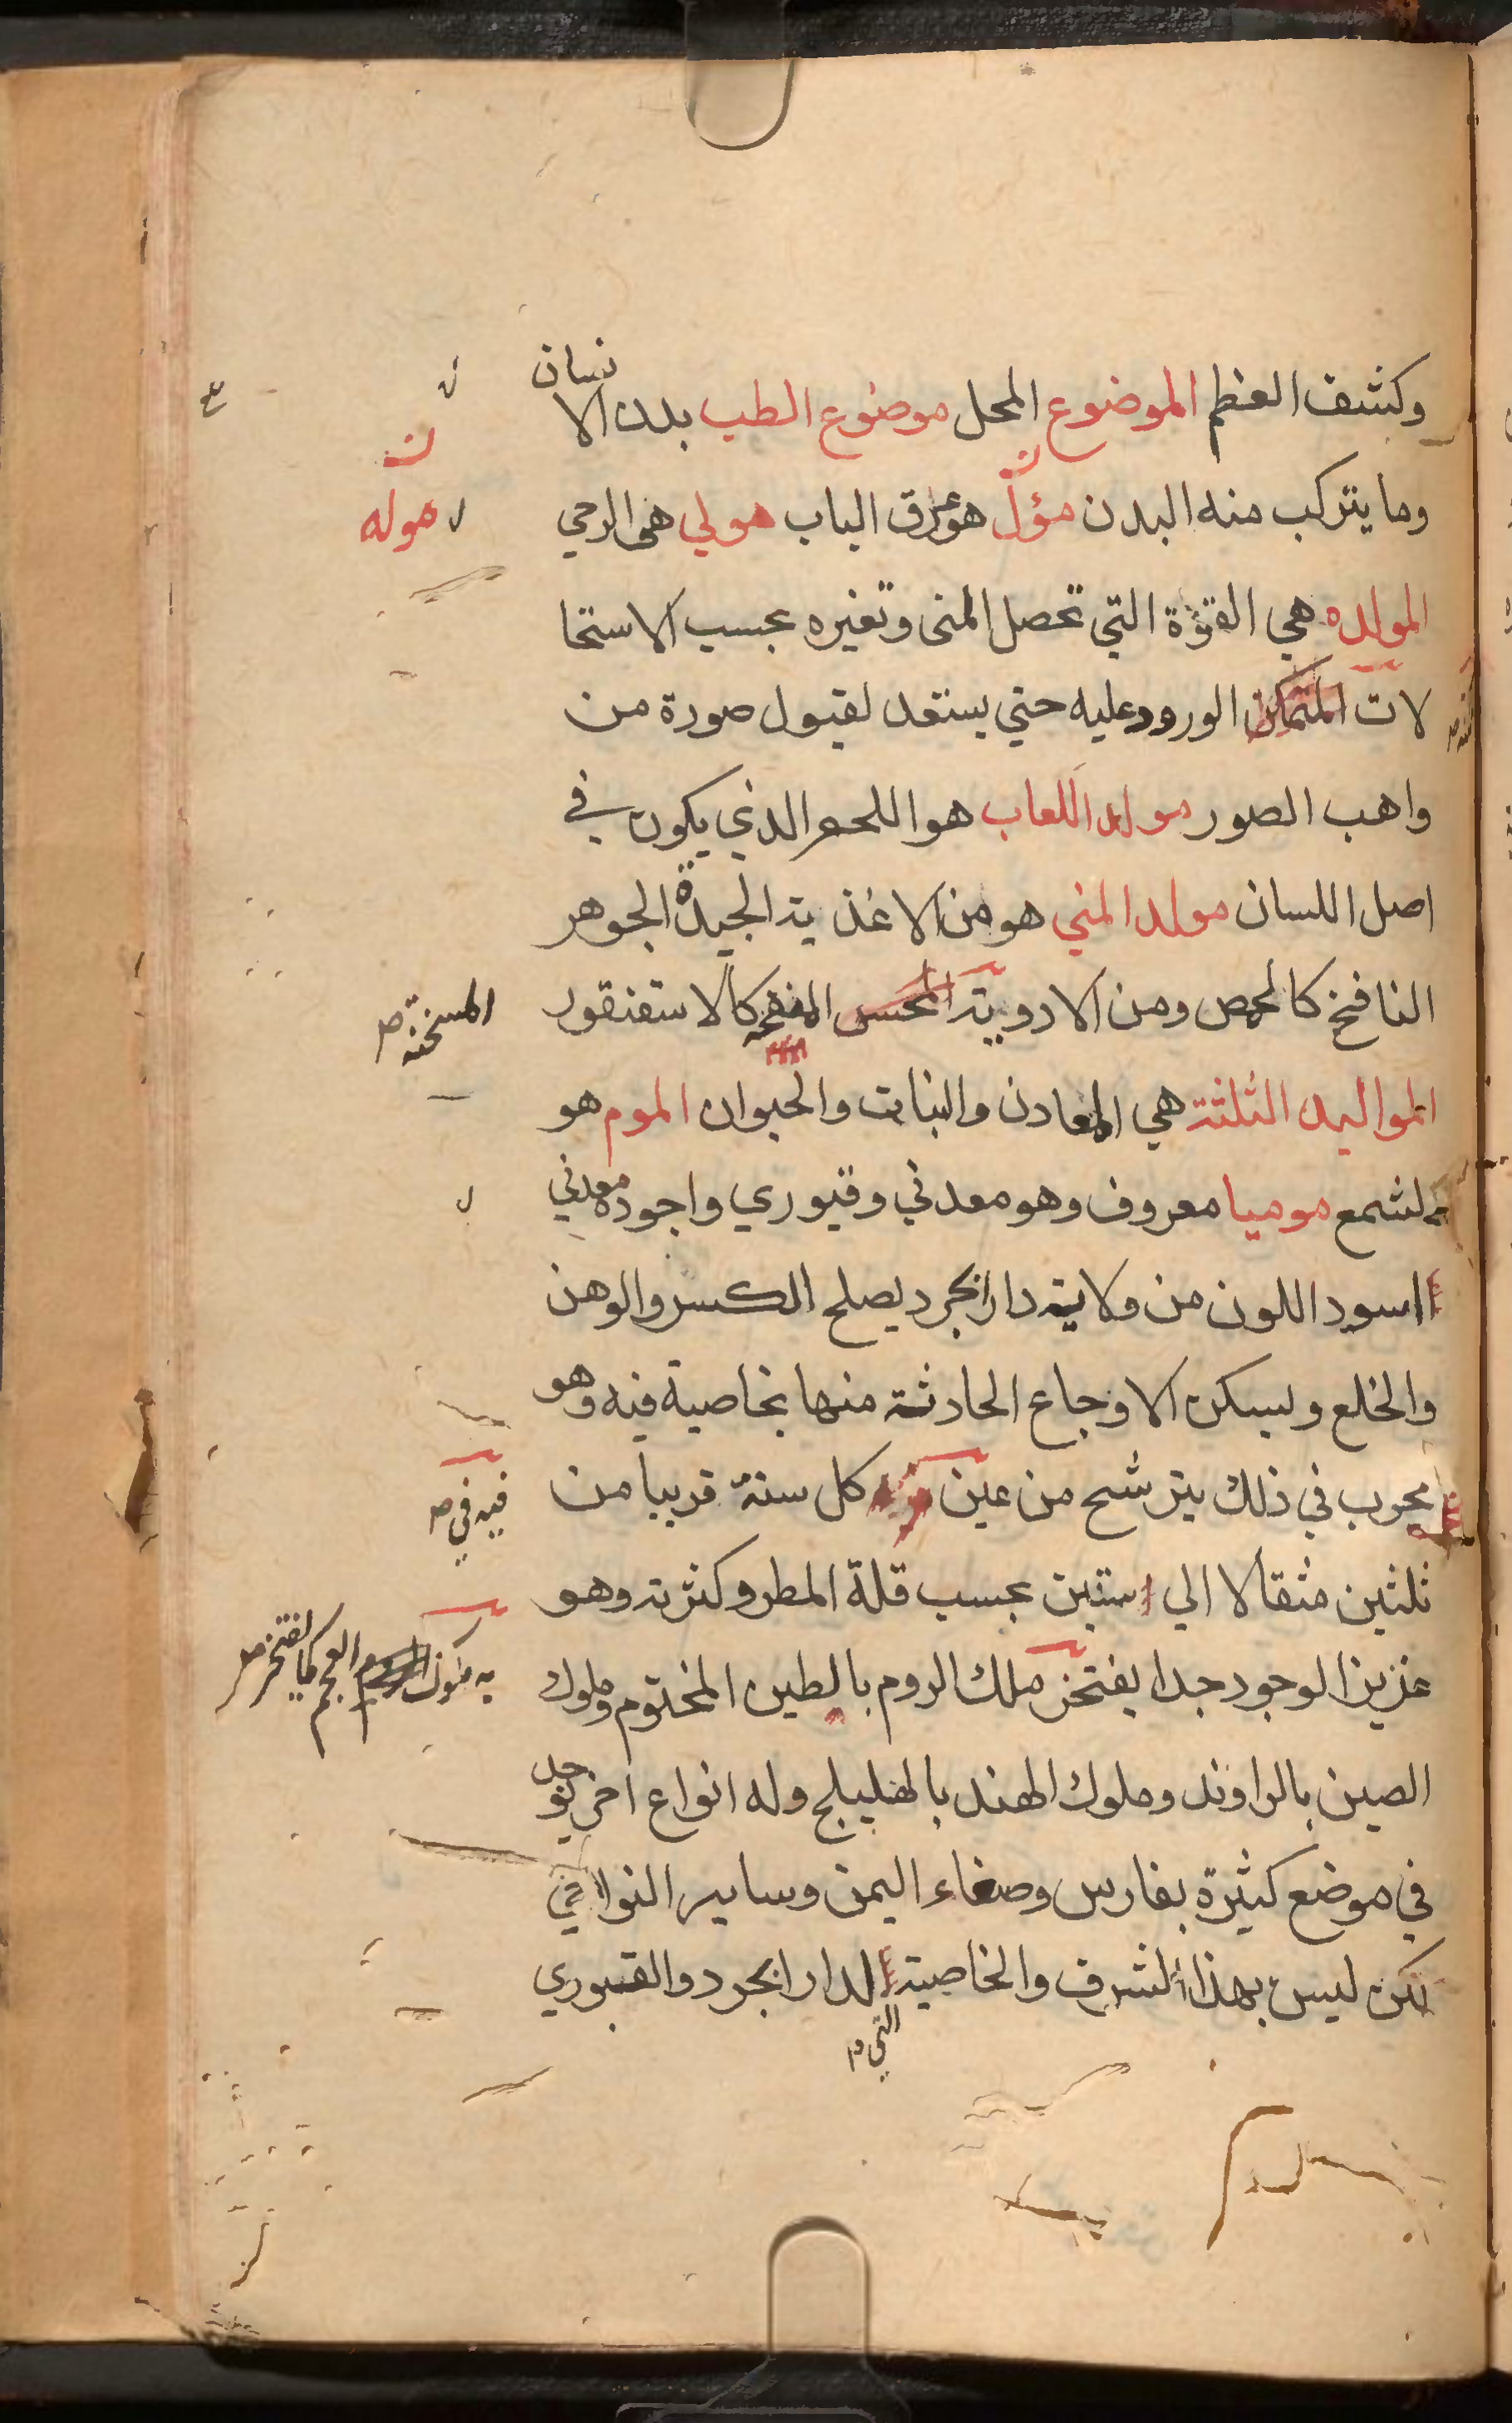 وكشف العظم الموضوع المحل موضوع الطب بدن الانسان
وما يتركب منه البدن مؤل هو عرق الباب هولي هي الرحي
المولده هي القوة التي تحصل المنى وتغيره بحسب الاستحا
لات الورود عليه حتي يستعد لقبول صورة من
واهب الصور مولد اللعاب هو اللحم الذي يكون في
اصل اللسان مولد المني هو من الاغذية الجيدة الجوهر
النافخ كالحمص ومن الادوية كالاسقنقور
المسخنة صح
المواليد الثلثة هي المعادن والنبات والحيوان الموم هو
الشمع موميا معروف وهو معدني وقبوري واجوده معدني
اسود اللون من ولاية دارابجرد يصلح الكسر والوهن
والخلع ويسكن الاوجاع الحادثة منها بخاصية فيه وهو
مجرب في ذلك يترشح من عين كل سنة قريبا من
فيه في صح
ثلثين مثقالا الي ستين بحسب قلة المطر وكثرته وهو
عزيز الوجود جدا يفتخر ملك الروم بالطين المختوم وملوك
به ملوك العجم كما يفتخر صح
الصين بالراوند وملوك الهند بالهليلج وله انواع اخر يوجد
في موضع كثيرة بفارس وصنعاء اليمن وساير النواحي
لكن ليس بهذا الشرف والخاصية الدارابجرد والقبوري
التي